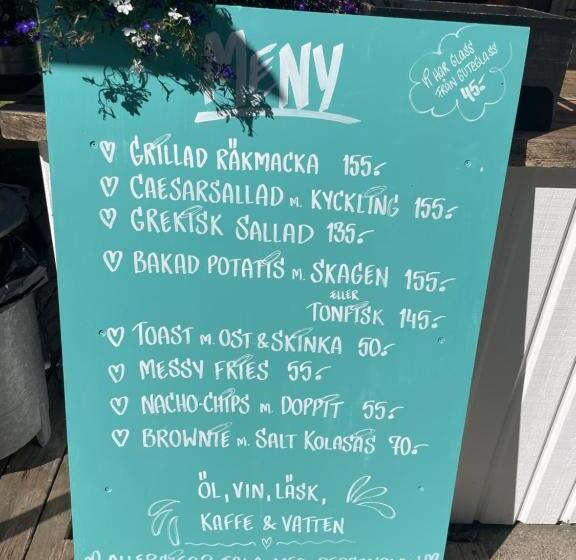 MENY
VI HAR GLASS
FRÅN GUTEGLASS
45:-
GRILLAD RÄKMACKA 155:-
CAESARSALLAD M. KYCKLING 155:-
GREKISK SALLAD 135:-
BAKAD POTATIS M. SKAGEN 155:-
ELLER
TONFISK 145:-
TOAST M. OST & SKINKA 50:-
MESSY FRIES 55:-
NACHO-CHIPS M. DOPPIT 55:-
BROWNIE M. SALT KOLASÅS 70:-
ÖL, VIN, LÄSK,
KAFFE & VATTEN